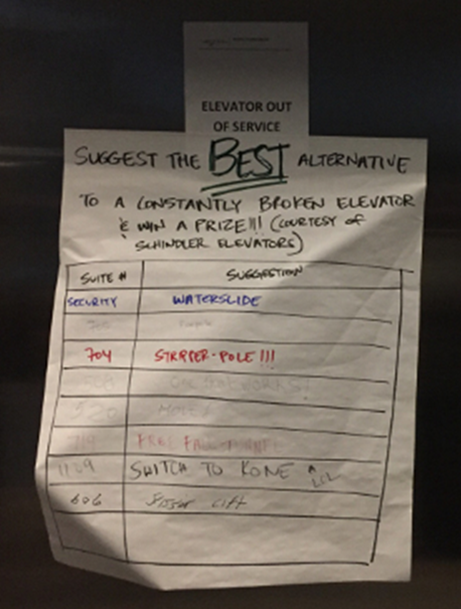 ELEVATOR OUT
OF SERVICE
SUGGEST THE BEST ALTERNATIVE
TO A CONSTANTLY BROKEN ELEVATOR
& WIN A PRIZE!!! (COURTESY OF
SCHINDLER ELEVATORS)
SUITE # SUGGESTION
SECURITY WATERSLIDE
704 STRIPPER-POLE!!!
520
FREE FALL
1129 SWITCH TO KONE ^ LOL
606 LIFT